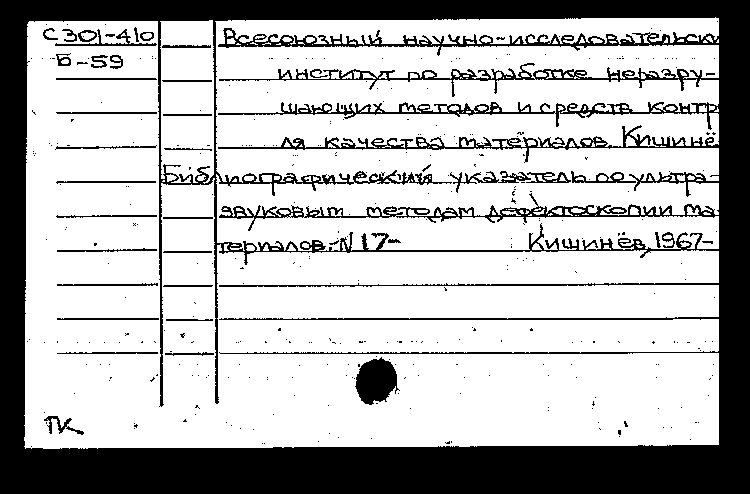 С301-410 Всесоюзный научно-исследовательски
Б-59
институт по разработке неразру-
шающих методов и средств контр
ля качества материалов. Кишинё
Библиографический указатель по ультра-
звуковым методам дефектоскопии ма-
териалов. N 17- Кишинёв, 1967-
ПК